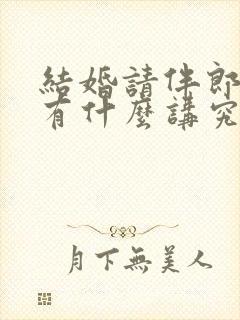 結婚請伴郎
有什麼講究
月下無美人